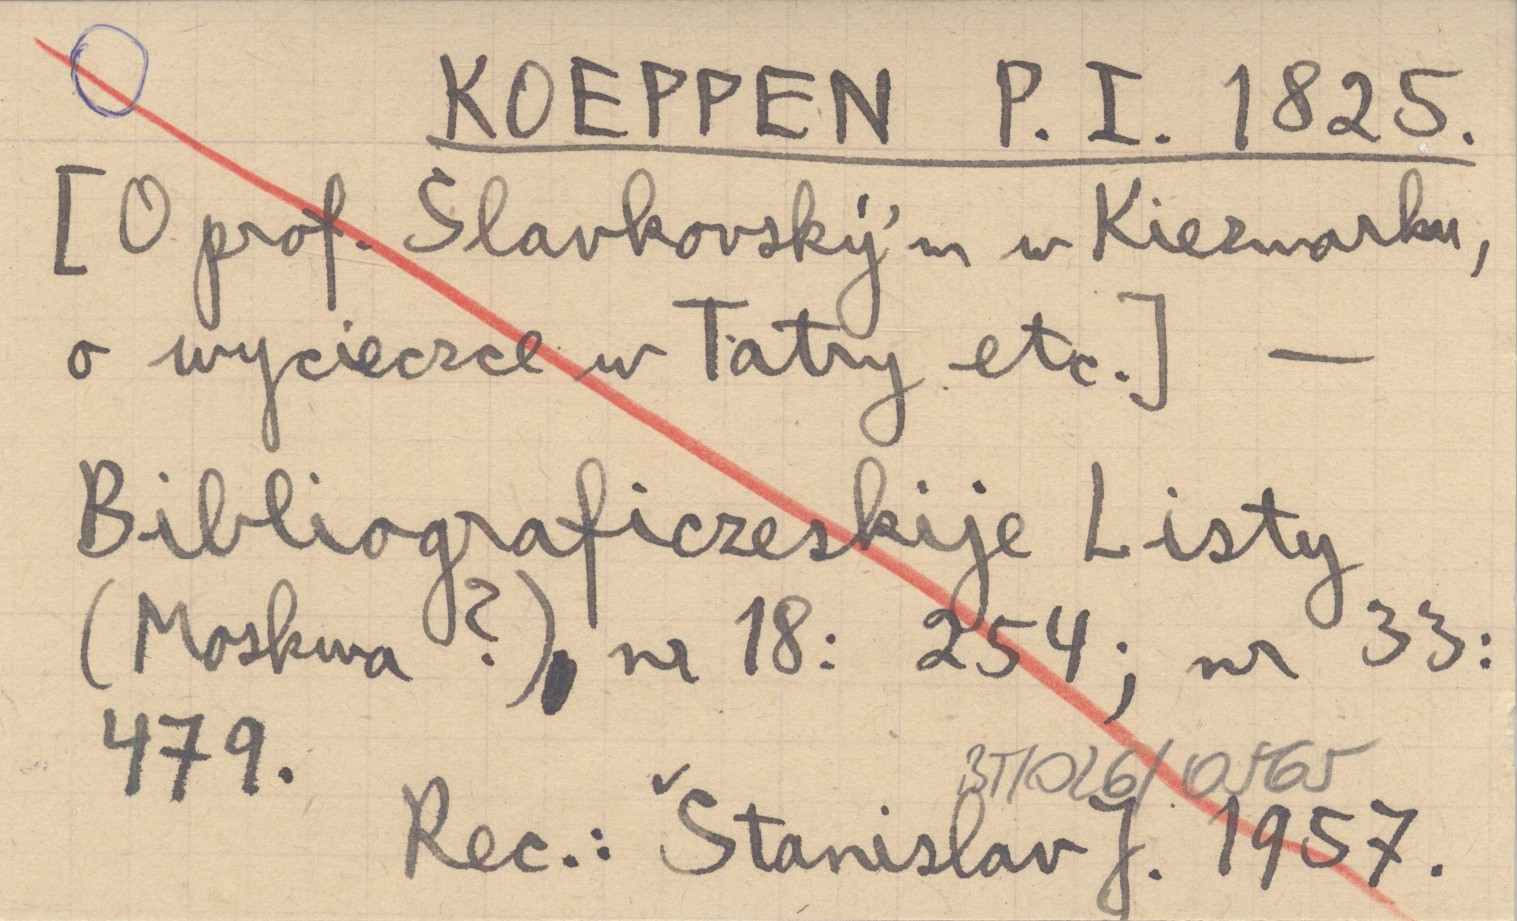 KOEPPEN P. I. 1825.
[O prof. Slavkovský'm w Kiezmarku,
o wycieczce w Tatry etc.] —
Bibliograficzeskije Listy
(Moskwa ?), nr 18: 254; nr 33:
479.
BT/026/10565
Rec.: Štanislav J. 1957.